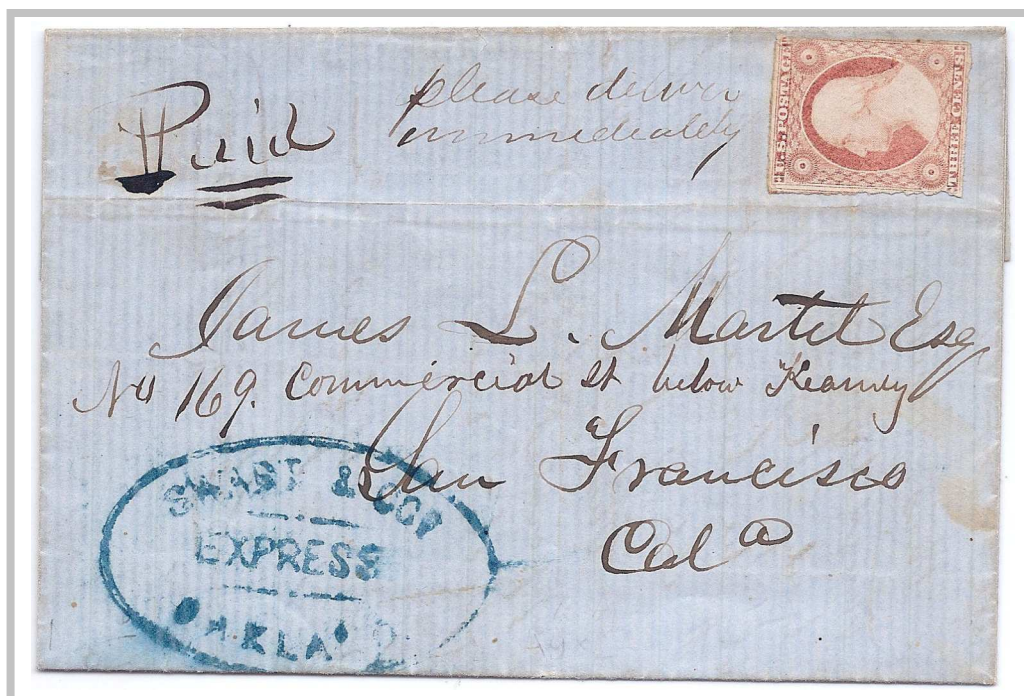 Paid
please deliver
immediately
U.S. POSTAGE
THREE CENTS
James L. Martel Esq
No 169. Commercial St below Kearny
San Francisco
Cala
& COS
EXPRESS
OAKLAND